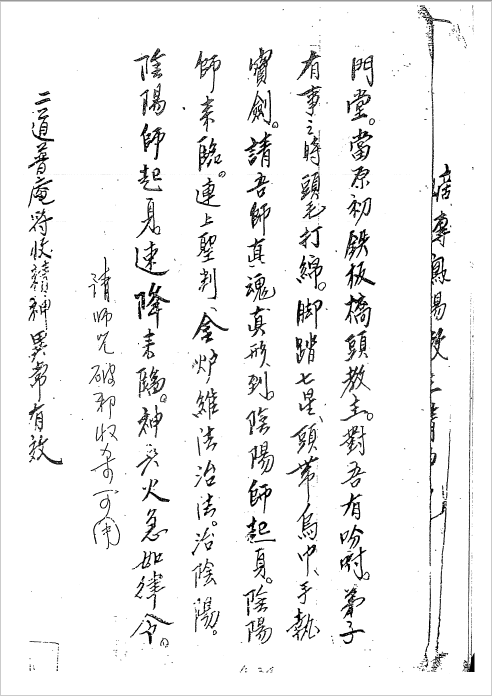 門堂。當原初鉄板橋頭教主。對吾有吩咐。弟子
有事之時頭毛打綿。脚踏七星、頭帶烏巾、手執
寶劍。請吾師真魂真形到。陰陽師起身。陰陽
師來臨。連上聖判金炉維法治法。治陰陽。
陰陽師起身。速降來臨。神兵火急如律令。
請師咒破邪收
二道普庵符收精神異常有效